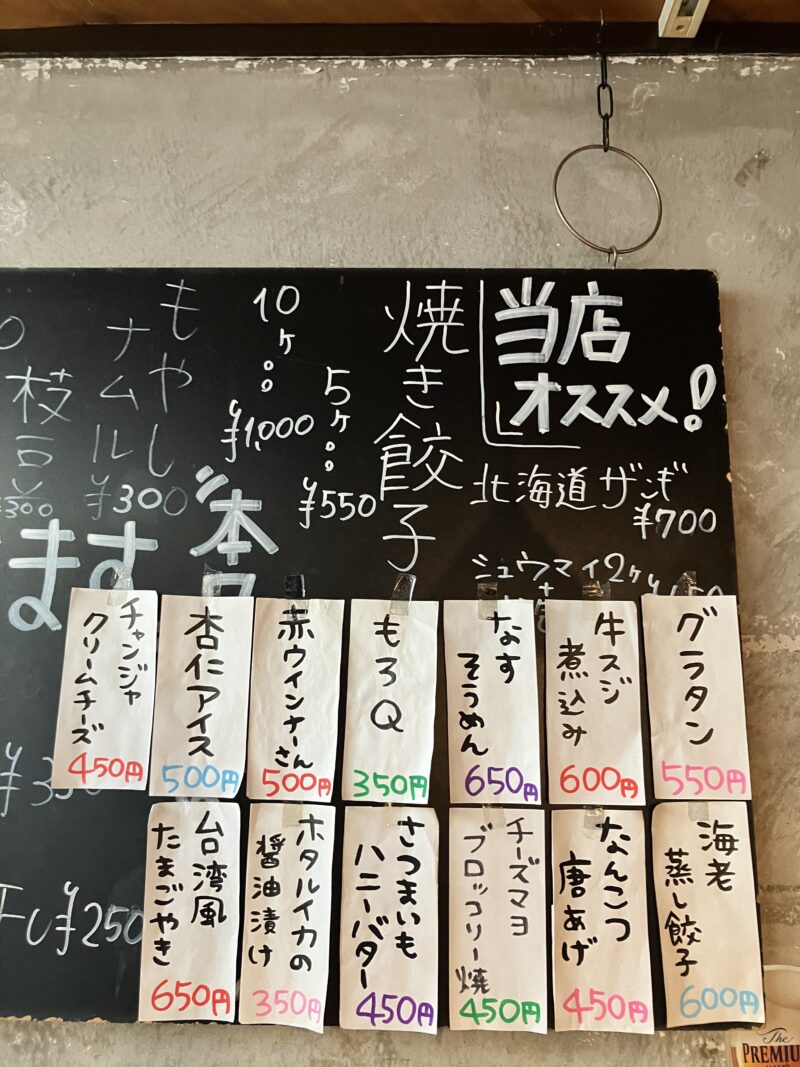 当店
オススメ!
北海道ザンギ
¥700
シュウマイ2ヶ
焼き餃子
5ヶ。。
¥550
10
ヶ。。
¥1,000
もやし
ナムル
¥300
枝豆
¥300
本
ます
グラタン
550円
牛スジ
煮込み
600円
なす
そうめん
650円
もろQ
350円
赤ウインナーさん
500円
杏仁アイス
500円
チャンジャ
クリームチーズ
450円
海老
蒸し餃子
600円
なんこつ
唐あげ
450円
チーズマヨ
ブロッコリー焼
450円
さつまいも
ハニーバター
450円
ホタルイカの
醤油漬け
350円
台湾風
たまごやき
650円
¥250
The
PREMIU